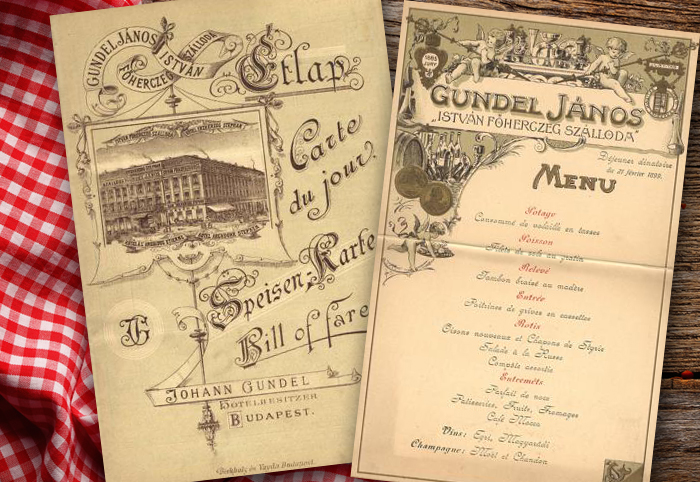 GUNDEL JÁNOS
ISTVÁN
FŐHERCZEG
SZÁLLODA
Étlap
Carte
du jour.
Speisen-Karte
Bill of fare
JG
JOHANN GUNDEL
HOTELBESITZER
BUDAPEST.
GUNDEL JÁNOS
„ISTVÁN FŐHERCZEG SZÁLLODA"
Déjeuner dinatoire
du 21 février 1899.
MENU
Potage
Consommé de volaille en tasses
Poisson
Filets de sole au gratin
Relevé
Jambon braisé au madère
Entrée
Poitrines de grives en caissettes
Rotis
Oisons nouveaux et Chapons de Styrie
Salade à la Russe
Compôte assortie
Entremêts
Parfait de noix
Pâtisseries, Fruits, Fromages
Café Mocca
Vins: Egri, Magyarádi
Champagne: Moët et Chandon